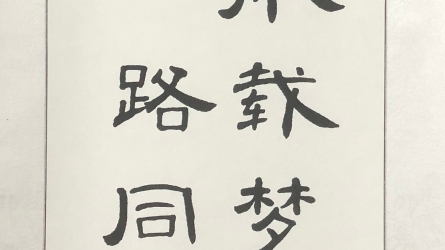 载梦
路同